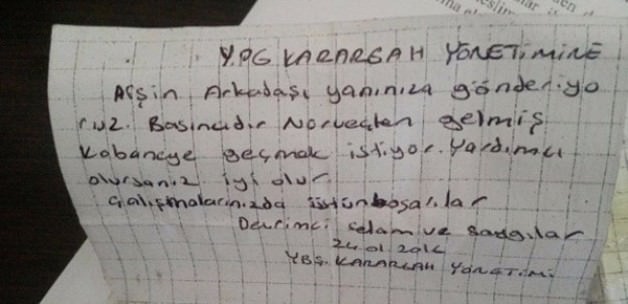 Y.P.G KARARGAH YÖNETİMİNE
Arşin Arkadaşı yanınıza gönderiyo
ruz. Basıncıdır Norveçten gelmiş
Kobaneye geçmek istiyor. Yardımcı
olursanız iyi olur
Çalışmalarınızda üstün başarılar
Devrimci selam ve saygılar
24.01.2016
YBŞ. KARARGAH YÖNETİMİ